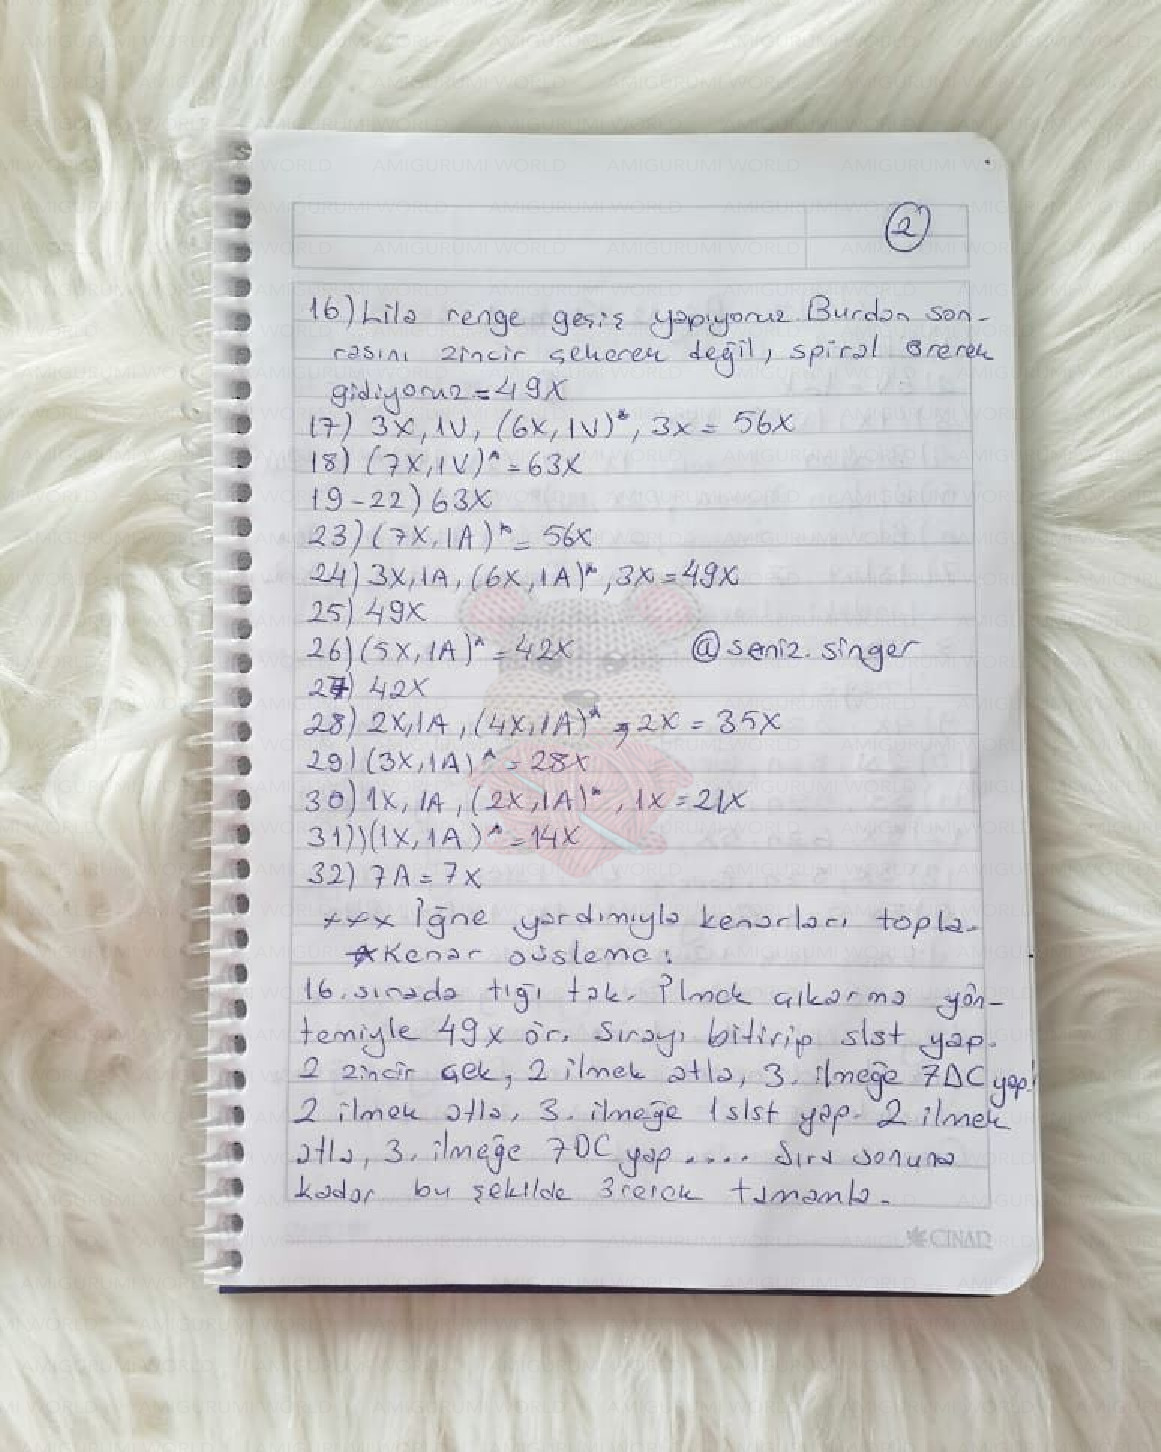 2
16) Lila renge geçiş yapıyoruz. Burdan son-
rasını zincir çekerek değil, spiral örerek
gidiyoruz = 49X
17) 3X, 1V, (6X, 1V)*, 3X = 56X
18) (7X, 1V)* = 63X
19-22) 63X
23) (7X, 1A)* = 56X
24) 3X, 1A, (6X, 1A)*, 3X = 49X
25) 49X
26) (5X, 1A)* = 42X @seniz.singer
27) 42X
28) 2X, 1A, (4X, 1A)*, 2X = 35X
29) (3X, 1A)* = 28X
30) 1X, 1A, (2X, 1A)*, 1X = 21X
31) (1X, 1A)* = 14X
32) 7A = 7X
*** İğne yardımıyla kenarları topla.
*Kenar süsleme:
16. sırada tığı tak. İlmek çıkarma yön-
temiyle 49X ör. Sırayı bitirip slst yap.
2 zincir çek, 2 ilmek atla, 3. ilmeğe 7DC yap.
2 ilmek atla, 3. ilmeğe 1 slst yap. 2 ilmek
atla, 3. ilmeğe 7DC yap.... Sıra sonuna
kadar bu şekilde örerek tamamla.
ÇINAR
AMIGURUMI WORLD